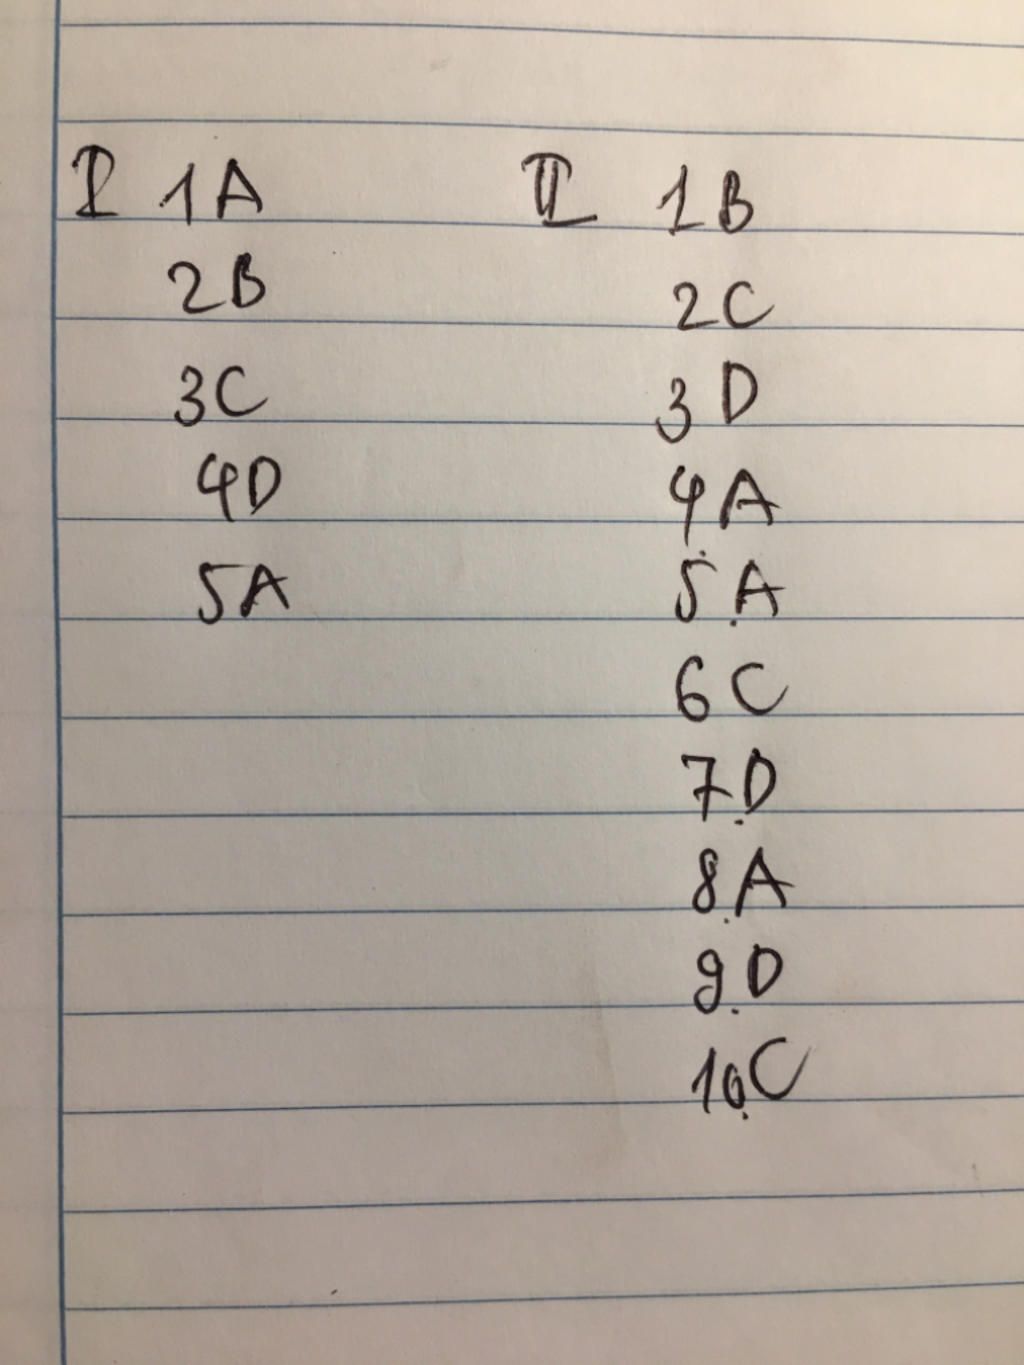 I 1A
2B
3C
4D
5A
II 1B
2C
3D
4A
5A
6C
7D
8A
9D
10C